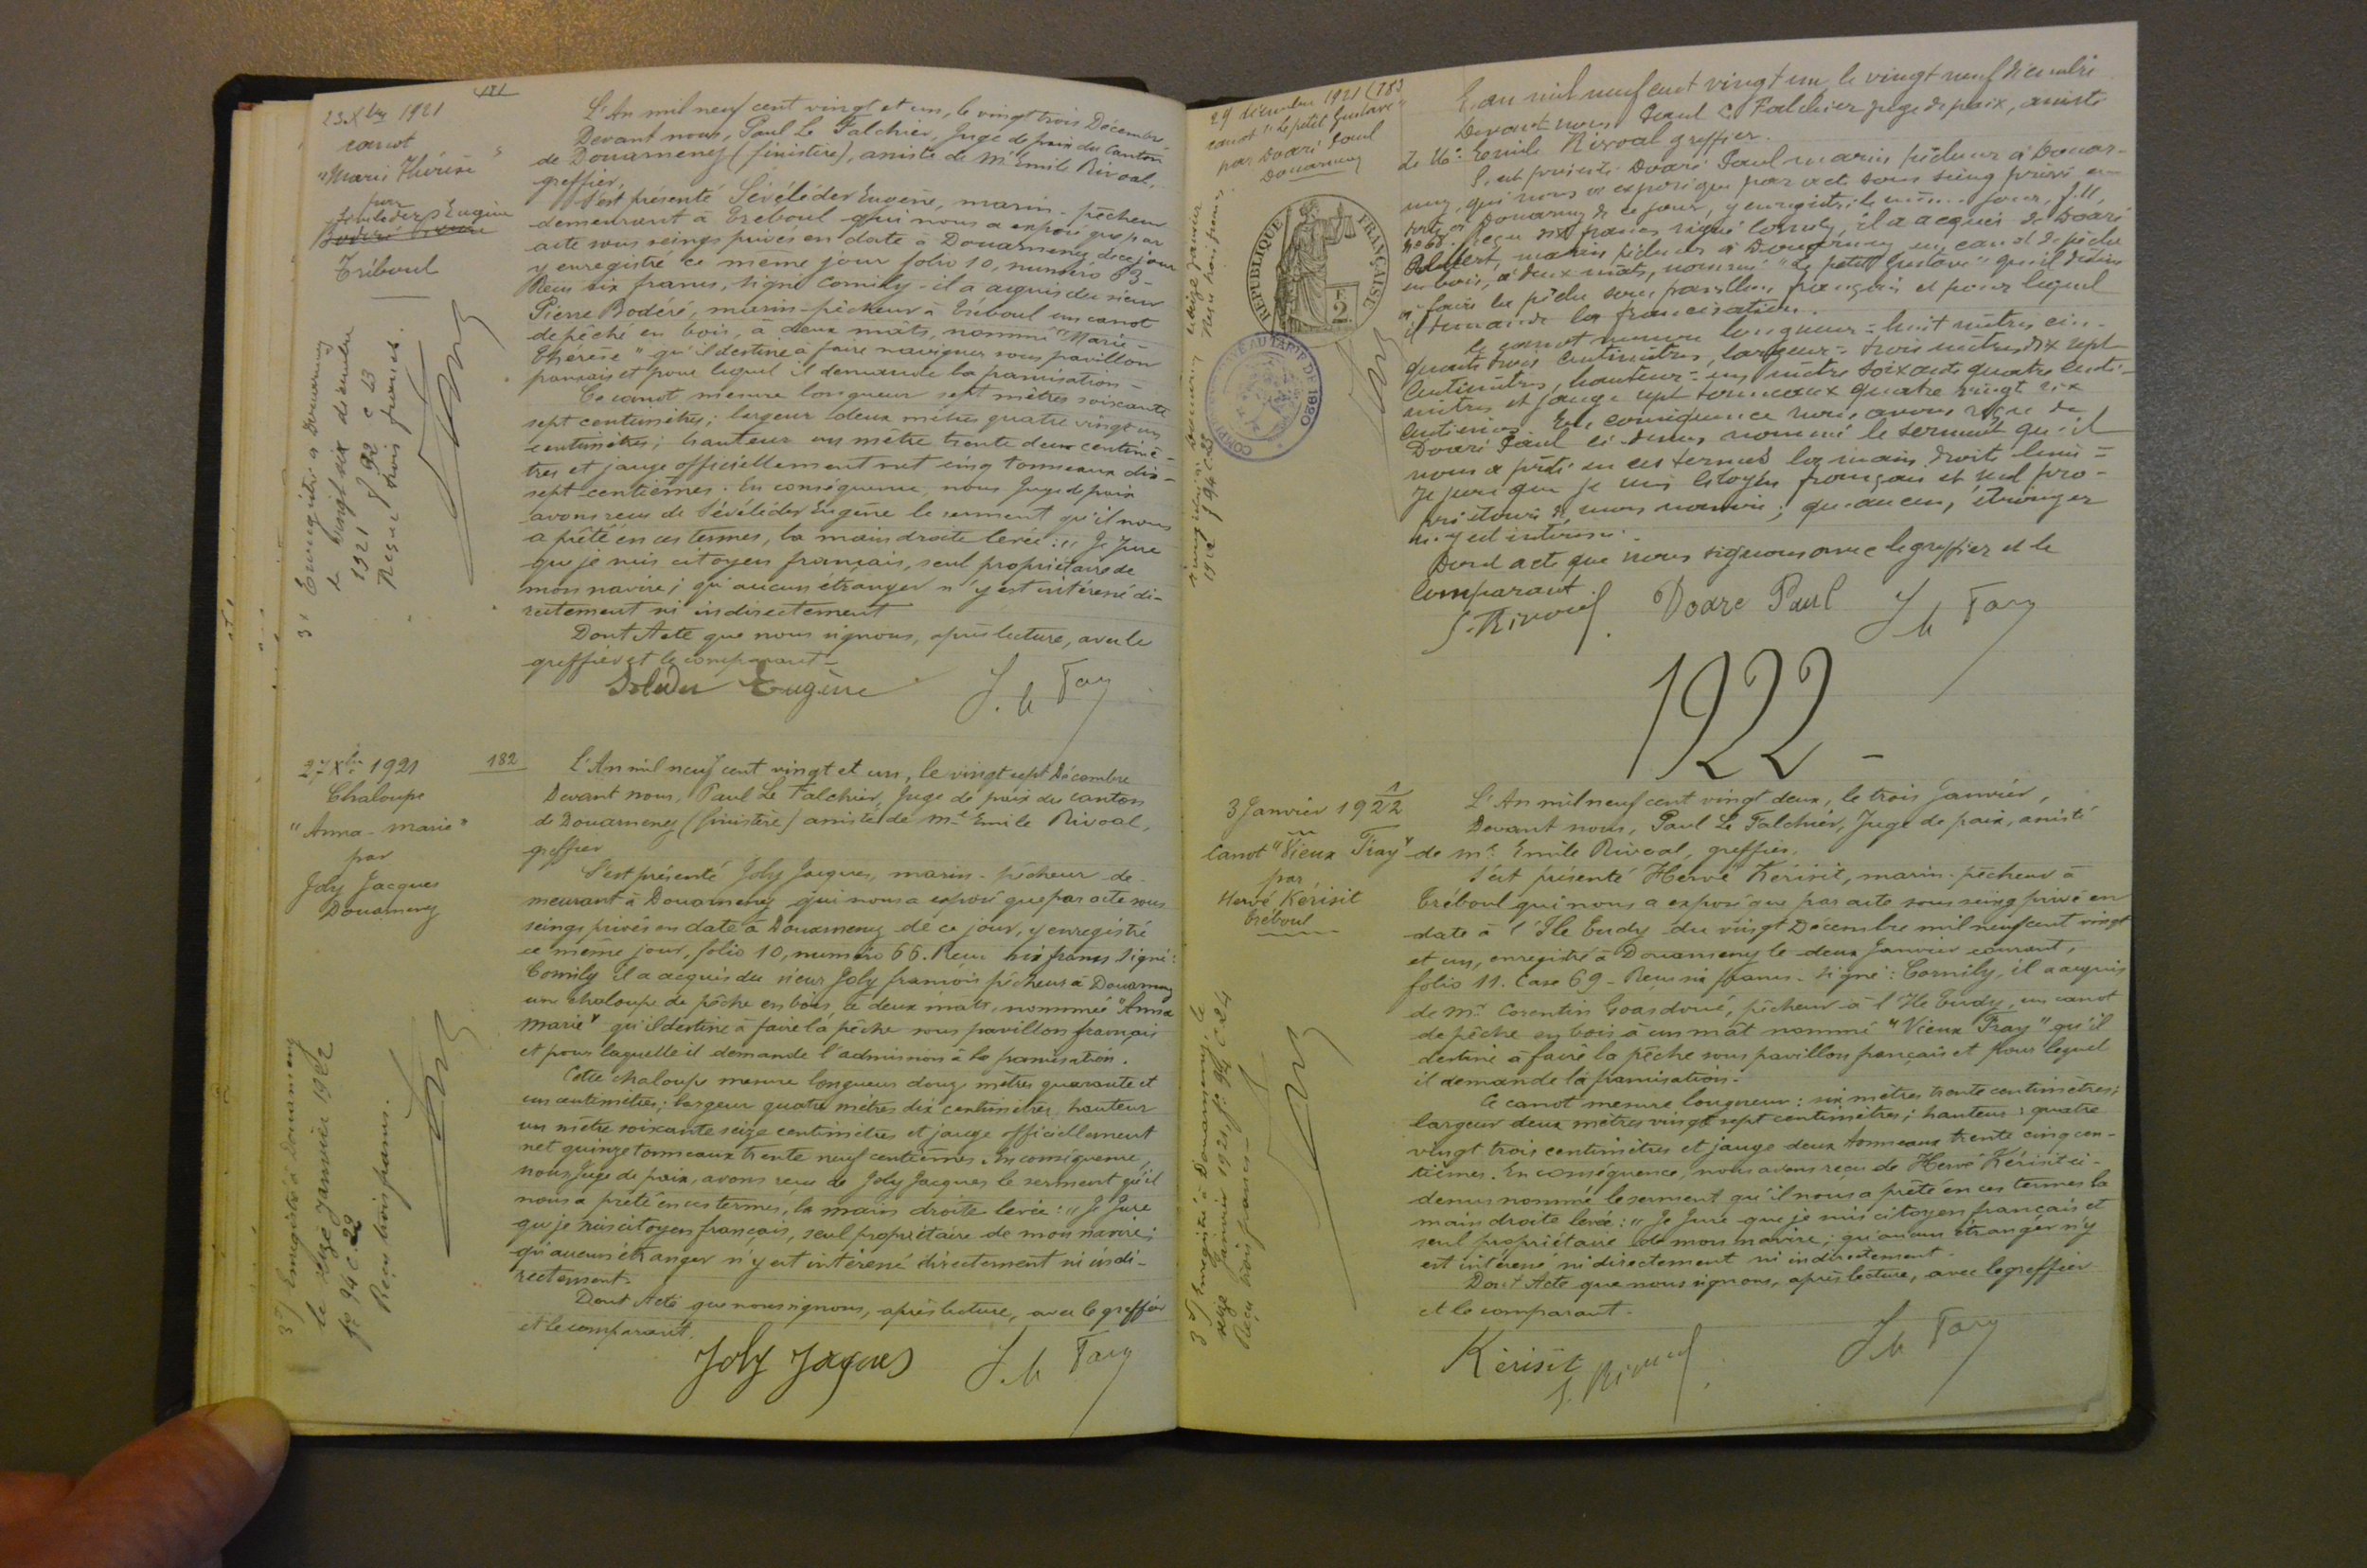 181
23 Xbre 1921
canot
"Marie Thérèse"
par
Eugène
Tréboul
L'An mil neuf cent vingt et un, le vingt trois Décembre,
Devant nous, Paul Le Falchier, Juge de paix du Canton
de Douarnenez (finistère), assisté de Me Emile Rivoal,
greffier,
S'est présenté Sévéléder Eugène, marin-pêcheur
demeurant à Tréboul qui nous a exposé que par
acte sous seings privés en date à Douarnenez de ce jour
y enregistré ce même jour folio 10, numéro 63-
Reçu six francs, signé Comily - il a acquis du sieur
Pierre Bodéré, marin-pêcheur à Tréboul un canot
de pêche en bois, à deux mâts, nommé "Marie-
Thérèse" qu'il destine à faire naviguer sous pavillon
français et pour lequel il demande la francisation -
Ce canot mesure longueur sept mètres soixante
sept centimètres; largeur deux mètres quatre vingt un
centimètres; hauteur un mètre trente deux centimè-
tres et jauge officiellement net cinq tonneaux dix-
sept centièmes. En conséquence, nous Juge de paix
avons reçu de Sévéléder Eugène le serment qu'il nous
a prêté en ces termes, la main droite levée: "Je Jure
que je suis citoyen français, seul propriétaire de
mon navire; qu'aucun étranger n'y est intéressé di-
rectement ni indirectement
Dont Acte que nous signons, après lecture, avec le
greffier et le comparant -
Eugène
Enregistré à Douarnenez
le vingt six décembre
1921 f 92 c 13
Reçu trois francs.
27 Xbre 1921
Chaloupe
"Anna-Marie"
par
Joly Jacques
Douarnenez
182
L'An mil neuf cent vingt et un, le vingt sept Décembre
Devant nous, Paul Le Falchier, Juge de paix du canton
de Douarnenez (finistère) assisté de Me Emile Rivoal,
greffier
S'est présenté Joly Jacques, marin-pêcheur de-
meurant à Douarnenez qui nous a exposé que par acte sous
seings privés en date à Douarnenez de ce jour, y enregistré
ce même jour, folio 10, numéro 66. Reçu six francs Signé:
Comily il a acquis du sieur Joly françois pêcheur à Douarnenez
une chaloupe de pêche en bois, à deux mâts, nommée "Anna
Marie" qu'il destine à faire la pêche sous pavillon français
et pour laquelle il demande l'admission à la francisation.
Cette chaloupe mesure longueur douze mètres quarante et
un centimètres; largeur quatre mètres dix centimètres, hauteur
un mètre soixante seize centimètres et jauge officiellement
net quinze tonneaux trente neuf centièmes. En conséquence,
nous Juge de paix, avons reçu de Joly Jacques le serment qu'il
nous a prêté en ces termes, la main droite levée: "Je Jure
que je suis citoyen français, seul propriétaire de mon navire;
qu'aucun étranger n'y est intéressé directement ni indi-
rectement.
Dont Acte que nous signons, après lecture, avec le greffier
et le comparant.
Joly Jacques
Enregistré à Douarnenez
le seize Janvier 1922
f° 94 c. 22
Reçu trois francs.
29 décembre 1921 (183
canot "Le petit Gustave"
par Doaré Paul
Douarnenez
REPUBLIQUE FRANÇAISE
TARIF DE 1920
L'an mil neuf cent vingt un, le vingt neuf décembre
Devant nous Paul Le Falchier juge de paix, assisté
de Me Emile Rivoal greffier.
S'est présenté Doaré Paul marin pêcheur à Douar-
nenez, qui nous a exposé que par acte sous seing privé en
date à Douarnenez de ce jour, y enregistré le même jour, f. 11,
n° 68. Reçu six francs signé Comily, il a acquis de Doaré
marin pêcheur à Douarnenez un canot de pêche
en bois, à deux mâts, nommé "Le petit Gustave" qu'il destine
à faire la pêche sous pavillon français et pour lequel
il demande la francisation.
Ce canot mesure longueur = huit mètres cin-
quante trois centimètres, largeur = trois mètres dix sept
centimètres, hauteur = un mètre soixante quatre centi-
mètres et jauge sept tonneaux quatre vingt six
centièmes. En conséquence nous avons reçu de
Doaré Paul ci-dessus nommé le serment qu'il
nous a prêté en ces termes la main droite levée =
Je jure que je suis citoyen français et seul pro-
priétaire de mon navire; qu'aucun étranger
n'y est intéressé.
Dont acte que nous signons avec le greffier et le
comparant.
E. Rivoal Doaré Paul
1922 -
3 Janvier 1922
1
Canot "Vieux Tray"
par
Hervé Kérisit
Tréboul
L'An mil neuf cent vingt deux, le trois Janvier,
Devant nous, Paul Le Falchier, Juge de paix, assisté
de Me Emile Rivoal, greffier.
S'est présenté Hervé Kérisit, marin-pêcheur à
Tréboul qui nous a exposé que par acte sous seing privé en
date à l'Ile Tudy du vingt Décembre mil neuf cent vingt
et un, enregistré à Douarnenez le deux Janvier courant,
folio 11. Case 69 - Reçu six francs - Signé: Comily, il a acquis
de Mr Corentin Goasdoué, pêcheur à l'Ile Tudy, un canot
de pêche en bois à un mât nommé "Vieux Tray" qu'il
destine à faire la pêche sous pavillon français et pour lequel
il demande la francisation.
Ce canot mesure longueur: six mètres trente centimètres;
largeur deux mètres vingt sept centimètres; hauteur: quatre
vingt trois centimètres et jauge deux tonneaux trente cinq cen-
tièmes. En conséquence, nous avons reçu de Hervé Kérisit ci-
dessus nommé le serment qu'il nous a prêté en ces termes la
main droite levée: "Je Jure que je suis citoyen français et
seul propriétaire de mon navire; qu'aucun étranger n'y
est intéressé ni directement ni indirectement.
Dont Acte que nous signons, après lecture, avec le greffier
et le comparant.
Kérisit E. Rivoal
Enregistré à Douarnenez, le
seize Janvier 1922, f: 94 C 24
Reçu trois francs -